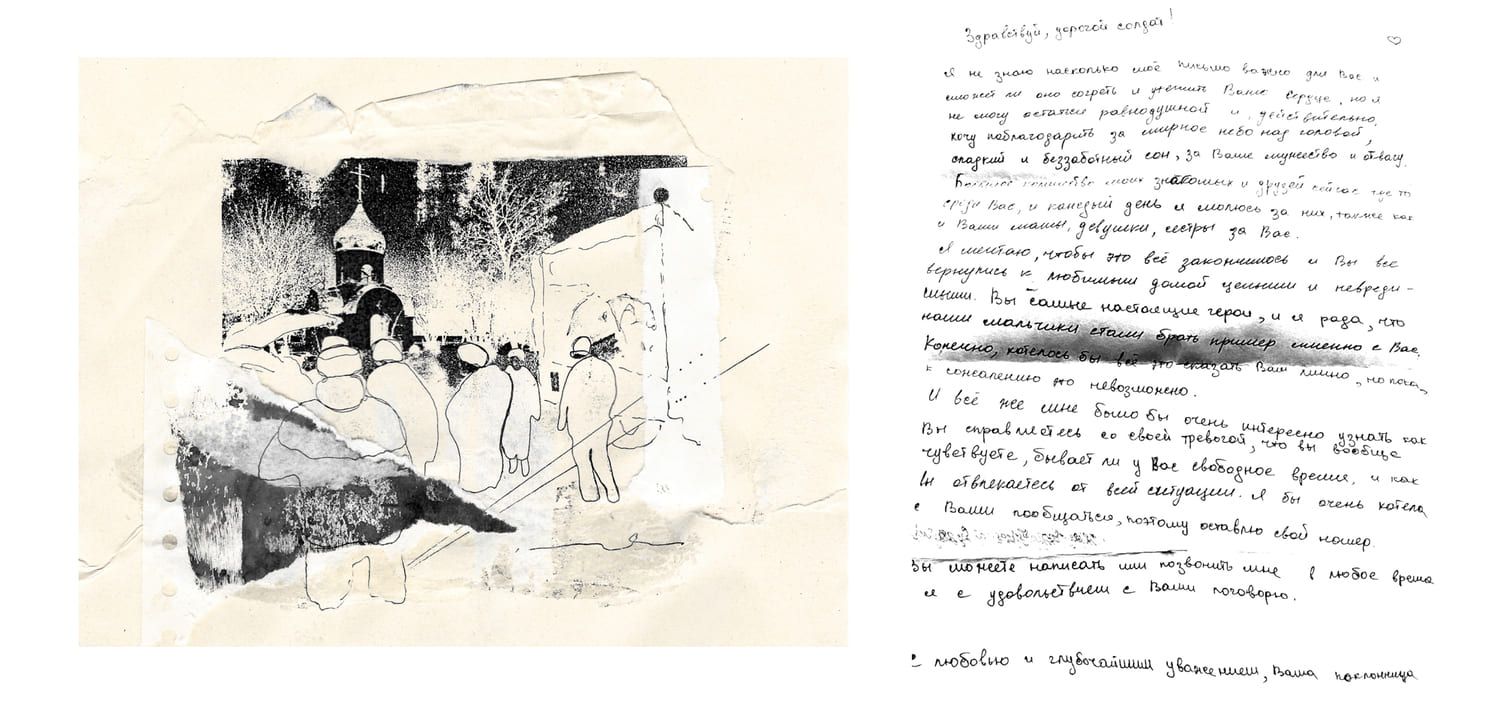 Здравствуй, дорогой солдат!
Я не знаю насколько моё письмо важно для Вас и
сможет ли оно согреть и утешить Ваше сердце, но я
не могу остаться равнодушной и, действительно,
хочу поблагодарить за мирное небо над головой,
сладкий и беззаботный сон, за Ваше мужество и отвагу.
Большинство моих знакомых и друзей сейчас где то
среди Вас, и каждый день я молюсь за них, также как
и Ваши мамы, девушки, сестры за Вас.
Я мечтаю, чтобы это всё закончилось и Вы все
вернулись к любимым домой целыми и невреди-
мыми. Вы самые настоящие герои, и я рада, что
наши мальчики стали брать пример именно с Вас.
Конечно, хотелось бы всё это сказать Вам лично, но пока,
к сожалению это невозможно.
И всё же мне было бы очень интересно узнать как
Вы справляетесь со своей тревогой, что вы вообще
чувствуете, бывает ли у Вас свободное время, и как
Вы отвлекаетесь от всей ситуации. Я бы очень хотела
с Вами пообщаться, поэтому оставлю свой номер.
Вы можете написать или позвонить мне в любое время
я с удовольствием с Вами поговорю.
С любовью и глубочайшим уважением, Ваша поклонница